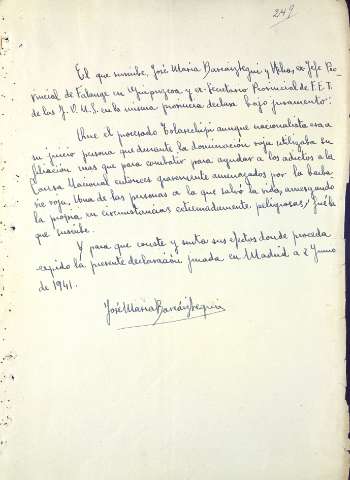 249
El que suscribe, José Maria Barcáiztegui y Uhlao, ex-Jefe Pro-
vincial de Falange en Guipuzcoa y ex-Secretario Provincial de F.E.T.
de las J.O.N.S. en la misma provincia declara bajo juramento:
Que el procesado Eolasechipi aunque nacionalista era a
su juicio persona que durante la dominación roja utilizaba su
filiación mas que para combatir para ayudar a los adictos a la
Causa Nacional entonces gravemente amenazados por la barba
rie roja. Una de las personas a la que salvó la vida, arriesgando
la propia en circunstancias extremadamente peligrosas, fué la
que suscribe.
Y para que conste y surta sus efectos donde proceda
expido la presente declaración jurada en Madrid a 2 Junio
de 1941.
José Maria Barcáiztegui